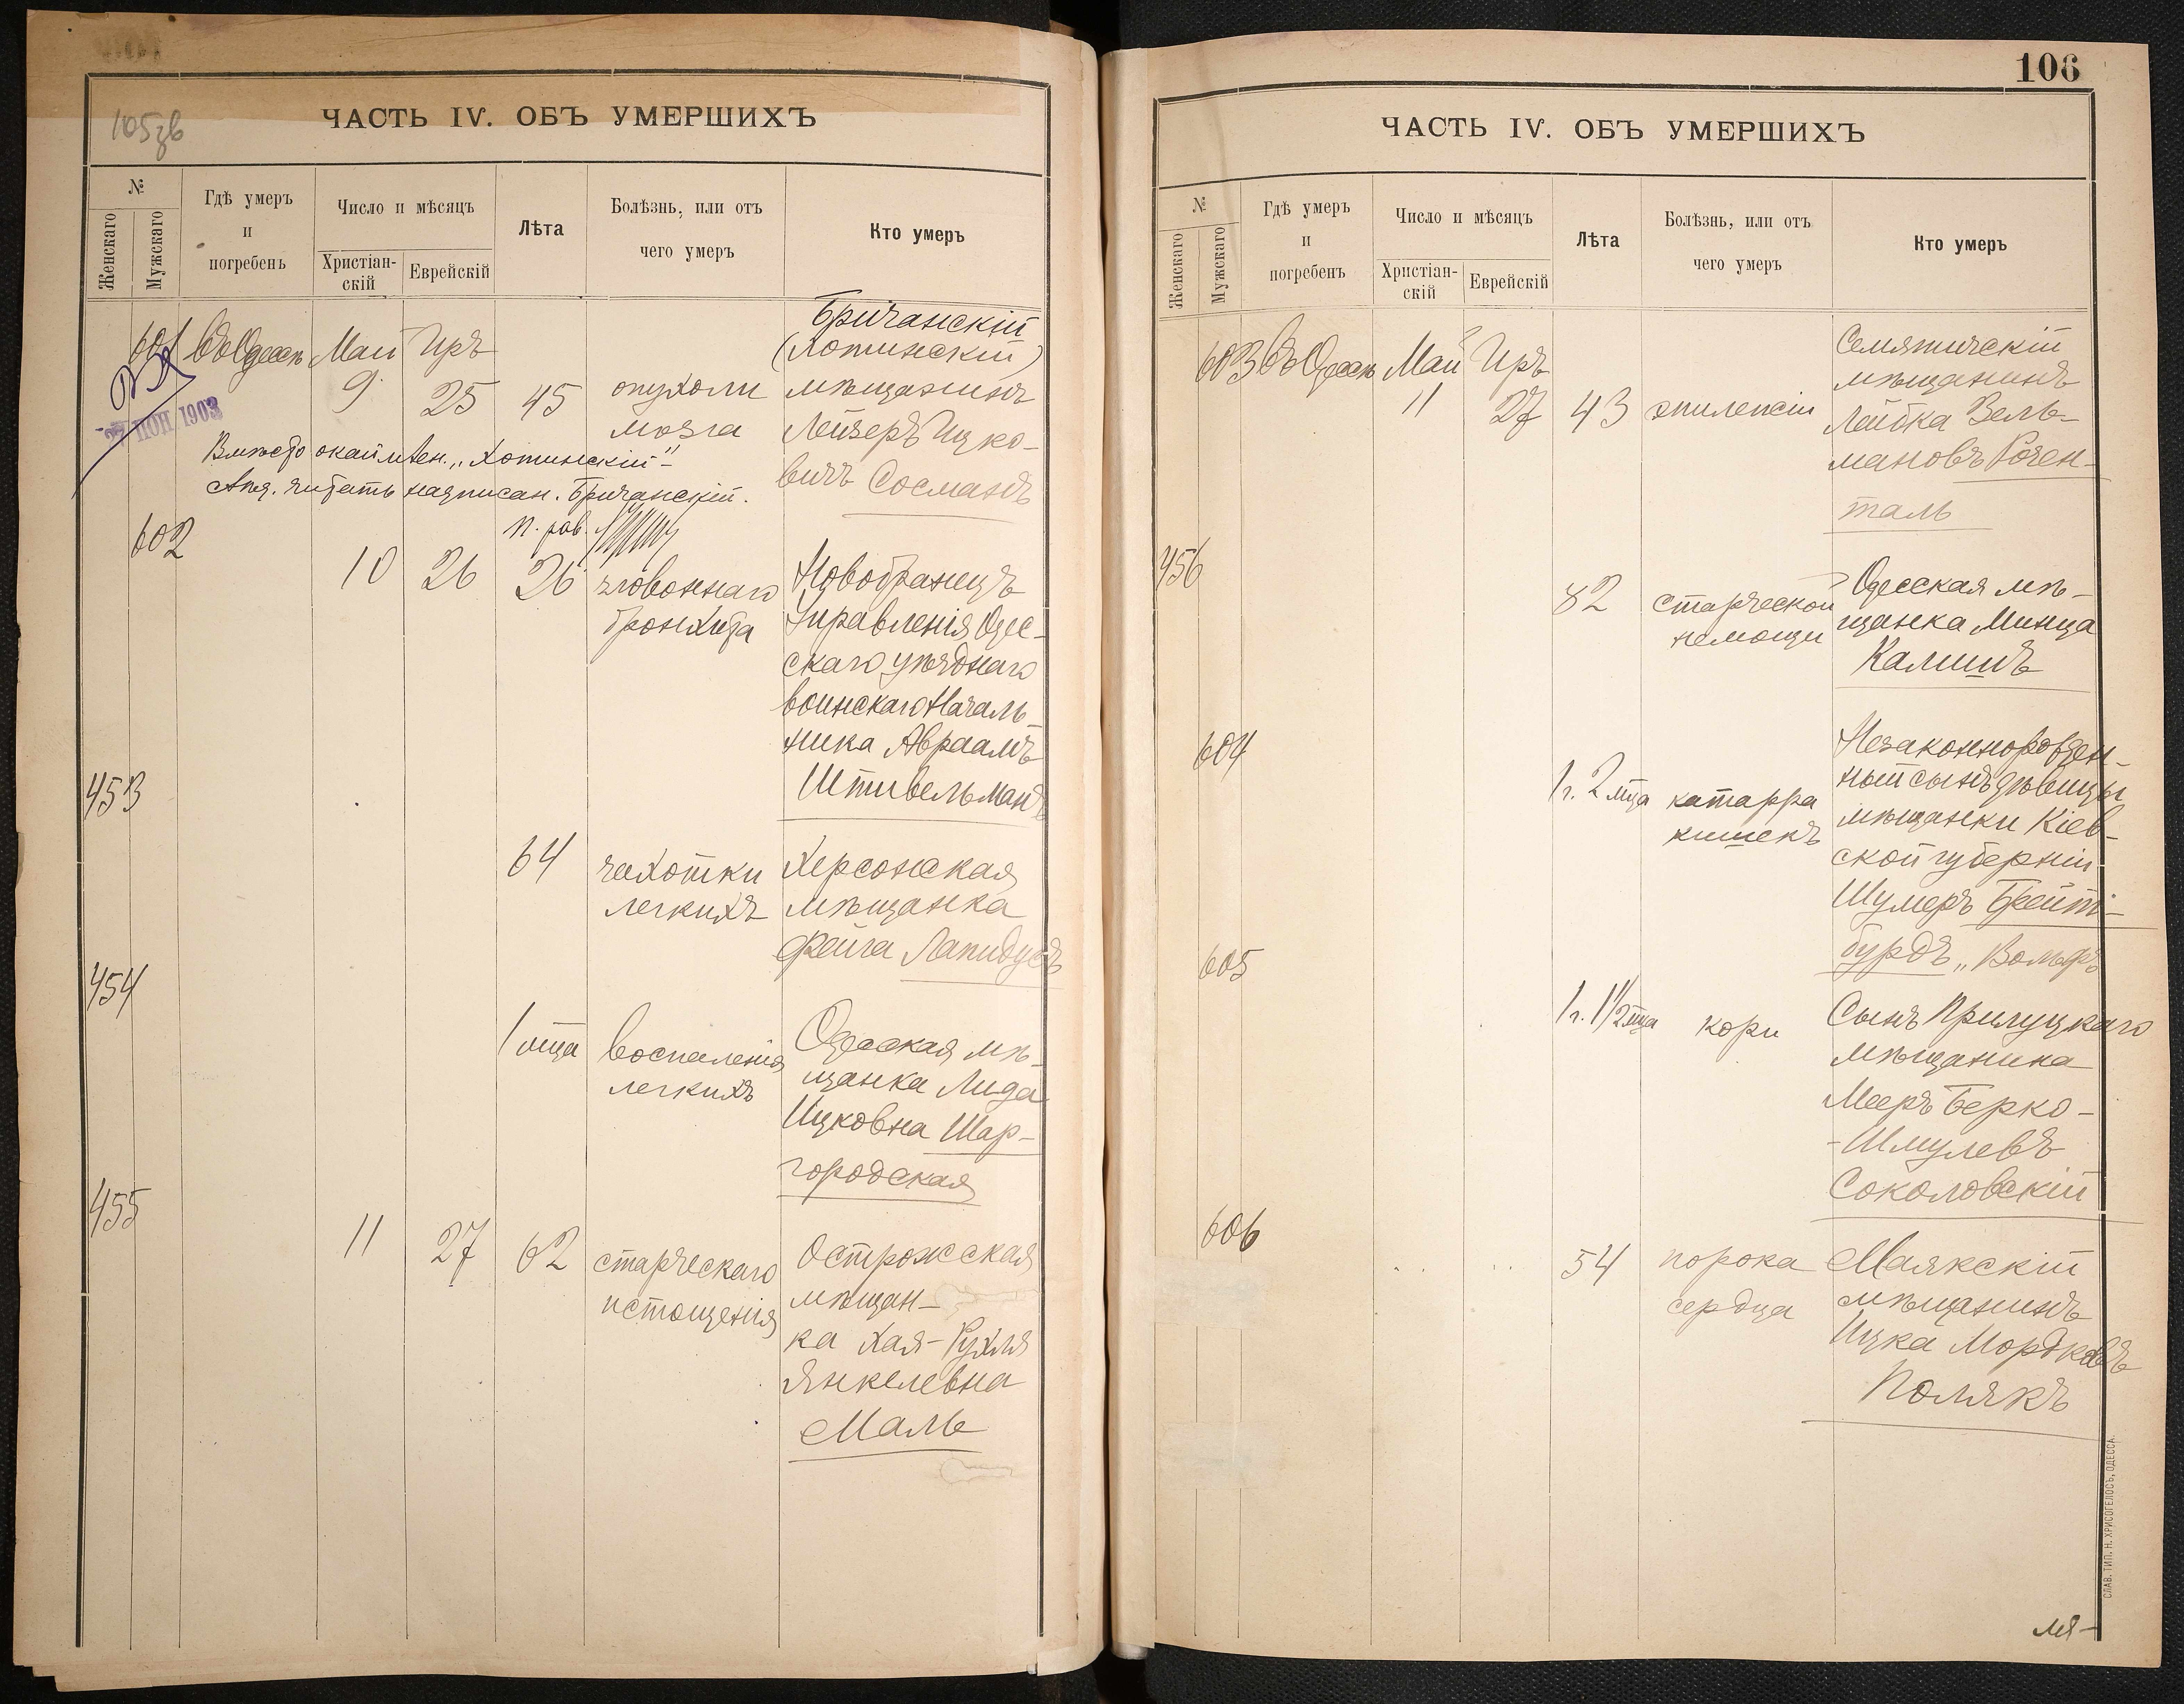 105зв
ЧАСТЬ IV. ОБЪ УМЕРШИХЪ
№
Женскаго
Мужскаго
Гдѣ умеръ
и
погребенъ
Число и мѣсяцъ
Христіан-
скій
Еврейскій
Лѣта
Болѣзнь, или отъ
чего умеръ
Кто умеръ
601 въ Одессѣ Май Иръ
9 25 45 опухоли
мозга
Бричанскій
(Хотинскій)
мѣщанинъ
Лейзеръ Ицко-
вичъ Сосманъ
27 ІЮН 1903
Вмѣсто окаймлен. „Хотинскій"
слѣд. читать надписан. Бричанскій.
602
10 26 26 зловоннаго
бронхита
Новобранецъ
Управленія Одес-
скаго уѣзднаго
воинскаго Началь-
ника Авраамъ
Штивельманъ
453
64 чахотки
легкихъ
Херсонская
мѣщанка
Фейга Лапидусъ
454
1 мца воспаленія
легкихъ
Одесская мѣ-
щанка Лида
Ицковна Шар-
городская
455
11 27 62 старческаго
истощенія
Острожская
мѣщан-
ка Хая-Рухля
Янкелевна
Маль
106
ЧАСТЬ IV. ОБЪ УМЕРШИХЪ
№
Женскаго
Мужскаго
Гдѣ умеръ
и
погребенъ
Число и мѣсяцъ
Христіан-
скій
Еврейскій
Лѣта
Болѣзнь, или отъ
чего умеръ
Кто умеръ
603 въ Одессѣ Май Иръ
11 27 43 эпилепсіи
Семятичскій
мѣщанинъ
Лейбка Зель-
мановъ Розен-
таль
456
82 старческой
немощи
Одесская мѣ-
щанка Минца
Калишъ
604
1 г. 2 мца катарра
кишекъ
Незаконнорожден-
ный сынъ дѣвицы
мѣщанки Кіев-
ской губерніи
Шумеръ Брейт-
бурдъ „Вольфъ
605
1 г. 1 1/2 мца кори
Сынъ Прилуцкаго
мѣщанина
Мееръ Берко-
-Шмулевъ
Соколовскій
606
54 порока
сердца
Маякскій
мѣщанинъ
Ицка Мордковъ
Полякъ
СЛАВ. ТИП. Н. ХРИСОГЕЛОСЪ, ОДЕССА.